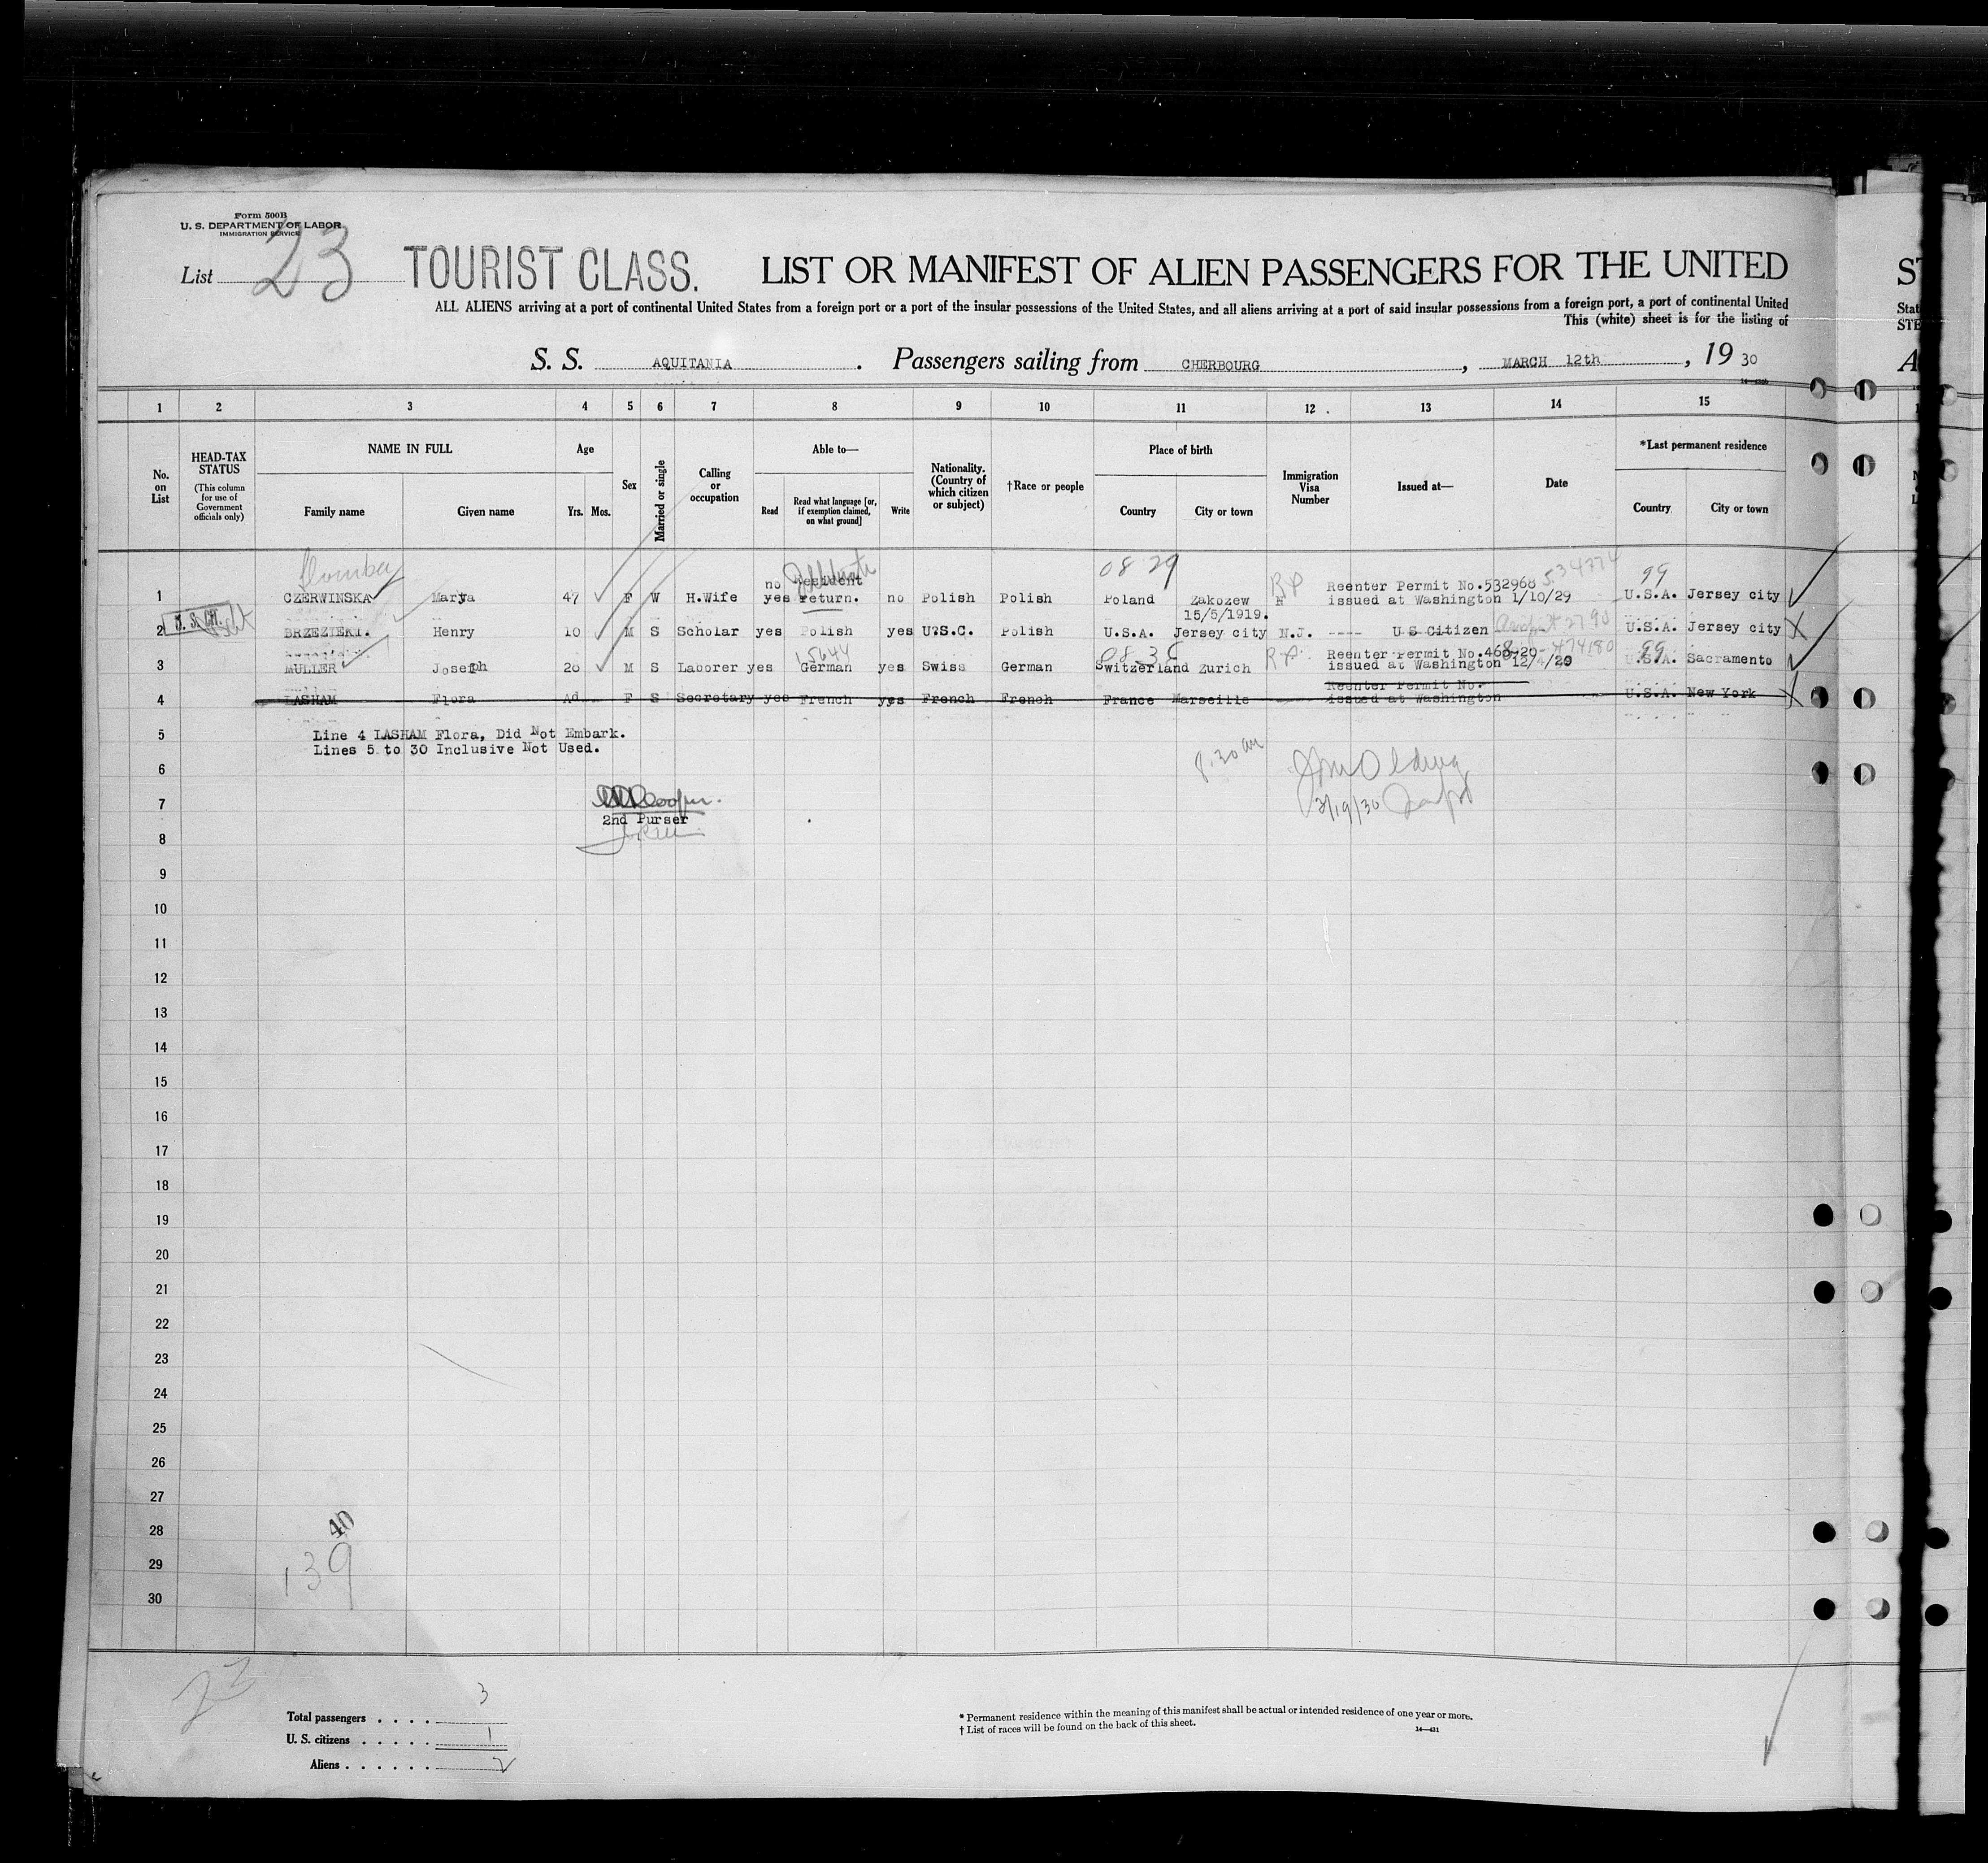 Form 500B
U. S. DEPARTMENT OF LABOR
IMMIGRATION SERVICE
List 23 TOURIST CLASS. LIST OR MANIFEST OF ALIEN PASSENGERS FOR THE UNITED
ALL ALIENS arriving at a port of continental United States from a foreign port or a port of the insular possessions of the United States, and all aliens arriving at a port of said insular possessions from a foreign port, a port of continental United
This (white) sheet is for the listing of
S. S. AQUITANIA. Passengers sailing from CHERBOURG, MARCH 12th, 19 30
1 2 3 4 5 6 7 8 9 10 11 12 13 14 15
No. on List
HEAD-TAX STATUS (This column for use of Government officials only)
NAME IN FULL
Family name Given name
Age
Yrs. Mos.
Sex
Married or single
Calling or occupation
Able to—
Read Read what language [or, if exemption claimed, on what ground] Write
Nationality. (Country of which citizen or subject)
†Race or people
Place of birth
Country City or town
Immigration Visa Number
Issued at—
Date
*Last permanent residence
Country City or town
08 29 534774 99
no resident Reenter Permit No.532968
1 CZERWINSKA Marya 47 F W H.Wife yes return. no Polish Polish Poland Zakozew issued at Washington 1/10/29 U.S.A. Jersey city
15/5/1919.
2 BRZEZIEKI. Henry 10 M S Scholar yes Polish yes U.S.C. Polish U.S.A. Jersey city N.J. ---- U S Citizen U.S.A. Jersey city
15644 RP Reenter Permit No. 474180 99
3 MULLER Joseph 28 M S Laborer yes German yes Swiss German Switzerland Zurich issued at Washington 12/4/29 U.S.A. Sacramento
Reenter Permit No.
4 LASHAM Flora Ad F S Secretary yes French yes French French France Marseille issued at Washington U.S.A. New York
5 Line 4 LASHAM Flora, Did Not Embark.
Lines 5 to 30 Inclusive Not Used.
6 8.30 am
7 Cooper.
2nd Purser 3/19/30
8
9
10
11
12
13
14
15
16
17
18
19
20
21
22
23
24
25
26
27
28 40
29 139
30
23
Total passengers . . . . 3
U. S. citizens . . . . . 1
Aliens . . . . . . 2
* Permanent residence within the meaning of this manifest shall be actual or intended residence of one year or more.
† List of races will be found on the back of this sheet. 14—421